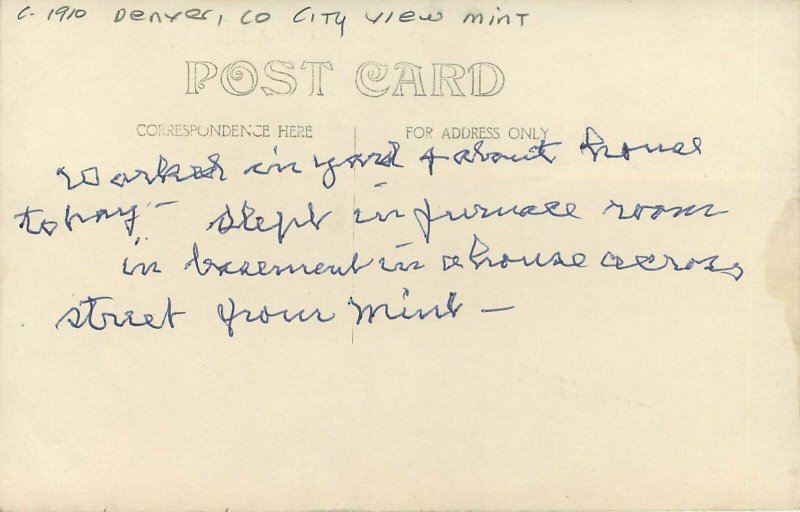 C. 1910 Denver, CO City View Mint
POST CARD
CORRESPONDENCE HERE
FOR ADDRESS ONLY
Worked in yard & about house
today - slept in furnace room
in basement in a house across
street from Mint -